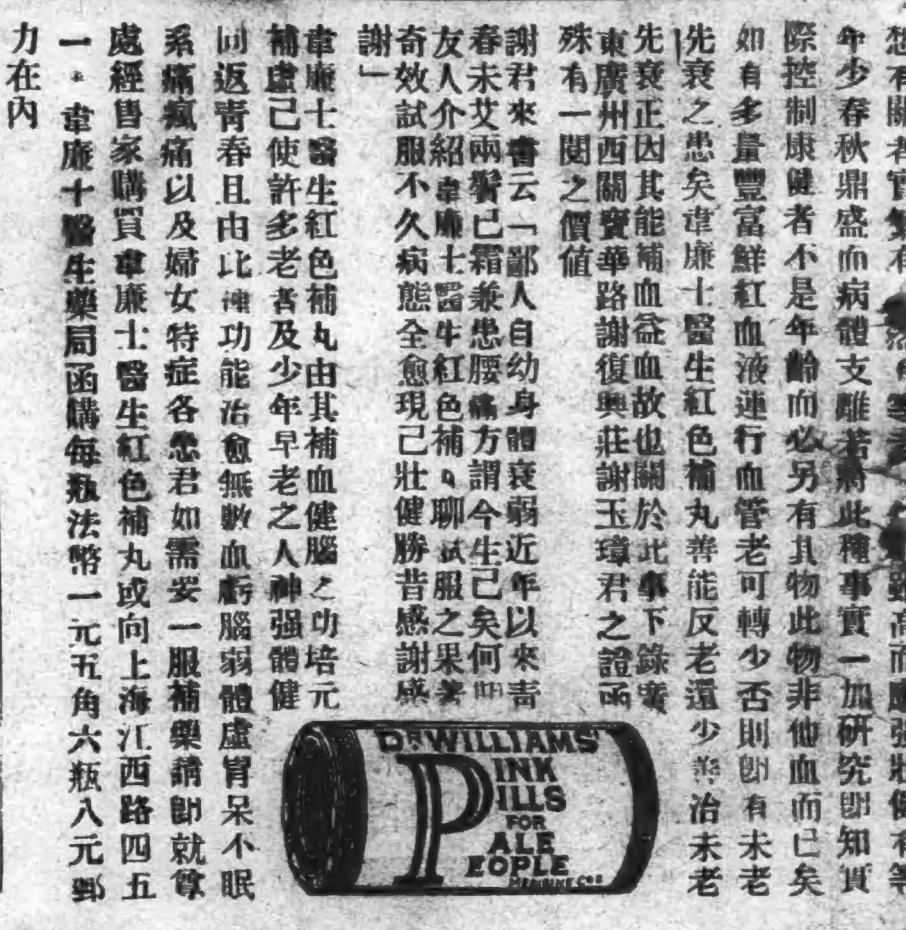 想有關者實繁有
然
雖高而應強壯健有等
年少春秋鼎盛而病體支離若將此種事實一加研究卽知實
際控制康健者不是年齡而必另有其物此物非他血而已矣
如有多量豐富鮮紅血液運行血管老可轉少否則卽有未老
先衰之患矣韋廉士醫生紅色補丸善能反老還少善治未老
先衰正因其能補血益血故也關於此事下錄廣
東廣州西關寶華路謝復興莊謝玉璋君之證函
殊有一閱之價值
謝君來書云「鄙人自幼身體衰弱近年以來靑
春未艾兩鬢已霜兼患腰痛方謂今生已矣何
友人介紹韋廉士醫生紅色補丸聊試服之果著
奇效試服不久病態全愈現已壯健勝昔感謝感
謝」
韋廉士醫生紅色補丸由其補血健腦之功培元
補虛已使許多老者及少年早老之人神强體健
回返靑春且由此神功能治愈無數血虧腦弱體虛胃呆不眠
系痛瘋痛以及婦女特症各恙君如需要一服補藥請卽就
處經售家購買韋廉士醫生紅色補丸或向上海江西路四五
一・韋廉士醫生藥局函購每瓶法幣一元五角六瓶八元郵
力在內
DR WILLIAMS'
PINK
PILLS
FOR
PALE
PEOPLE
MEDICINE Co